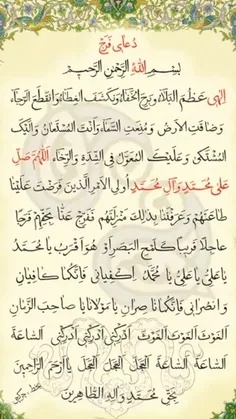 دُعای فَرَج
بِسْمِ اللّٰهِ الرَّحْمٰنِ الرَّحیمِ
اِلٰهی عَظُمَ الْبَلاٰءُ وَبَرِحَ الْخَفٰاءُ وَانْكَشَفَ الْغِطٰاءُ وَانْقَطَعَ الرَّجٰاءُ
وَضٰاقَتِ الْاَرْضُ وَمُنِعَتِ السَّمٰاءُ وَاَنْتَ الْمُسْتَعٰانُ وَاِلَيْكَ
الْمُشْتَكیٰ وَعَلَيْكَ الْمُعَوَّلُ فِی الشِّدَّةِ وَالرَّخٰاءِ اَللّٰهُمَّ صَلِّ
عَلیٰ مُحَمَّدٍ وَآلِ مُحَمَّدٍ اُولِی الْاَمْرِ الَّذينَ فَرَضْتَ عَلَيْنٰا
طٰاعَتَهُمْ وَعَرَّفْتَنٰا بِذٰلِكَ مَنْزِلَتَهُمْ فَفَرِّجْ عَنّٰا بِحَقِّهِمْ فَرَجاً
عٰاجِلاً قَريباً كَلَمْحِ الْبَصَرِ اَوْ هُوَ اَقْرَبُ يٰا مُحَمَّدُ
يٰا عَلِیُّ يٰا عَلِیُّ يٰا مُحَمَّدُ اِكْفِيٰانی فَاِنَّكُمٰا كٰافِيٰانِ
وَانْصُرٰانی فَاِنَّكُمٰا نٰاصِرٰانِ يٰا مَوْلاٰنٰا يٰا صٰاحِبَ الزَّمٰانِ
اَلْغَوْثَ اَلْغَوْثَ اَلْغَوْثَ اَدْرِكْنی اَدْرِكْنی اَدْرِكْنی اَلسّٰاعَةَ
اَلسّٰاعَةَ اَلسّٰاعَةَ اَلْعَجَلَ اَلْعَجَلَ اَلْعَجَلَ يٰا اَرْحَمَ الرّٰاحِمينَ
بِحَقِّ مُحَمَّدٍ وَآلِهِ الطّٰاهِرينَ